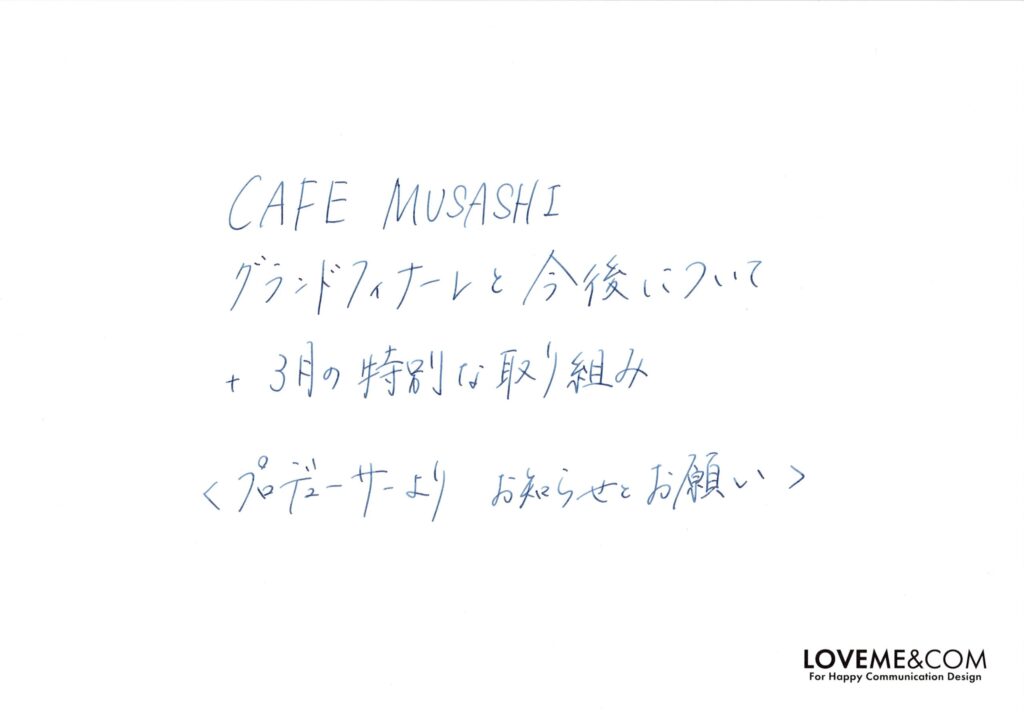 CAFE MUSASHI
グランドフィナーレと今後について
+ 3月の特別な取り組み
<プロデューサーより お知らせとお願い>
LOVEME&COM
For Happy Communication Design